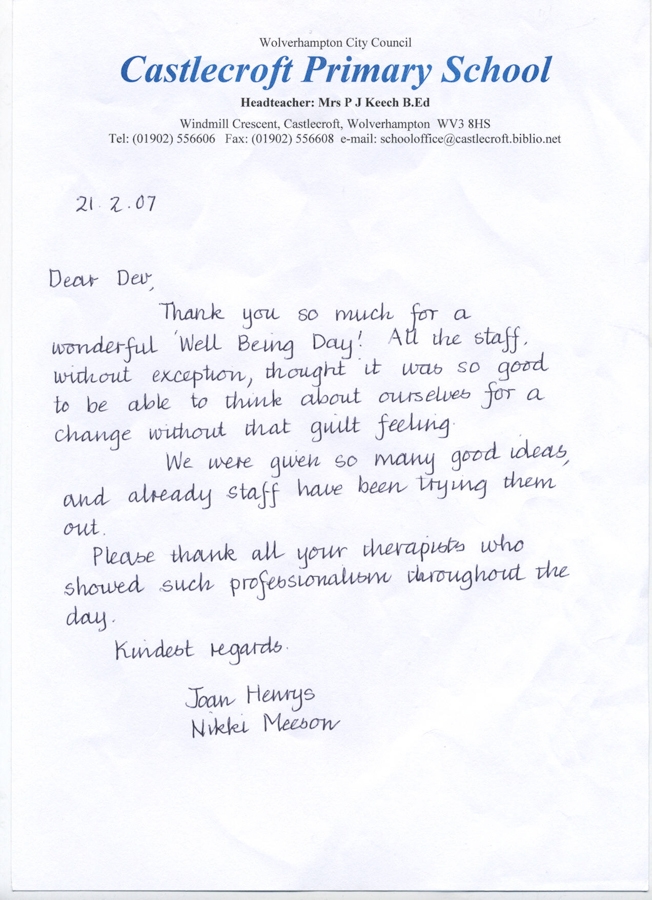 Wolverhampton City Council
Castlecroft Primary School
Headteacher: Mrs P J Keech B.Ed
Windmill Crescent, Castlecroft, Wolverhampton WV3 8HS
Tel: (01902) 556606 Fax: (01902) 556608 e-mail: schooloffice@castlecroft.biblio.net
21.2.07
Dear Dev,
Thank you so much for a
wonderful 'Well Being Day!' All the staff,
without exception, thought it was so good
to be able to think about ourselves for a
change without that guilt feeling.
We were given so many good ideas,
and already staff have been trying them
out.
Please thank all your therapists who
showed such professionalism throughout the
day.
Kindest regards.
Joan Henrys
Nikki Meeson